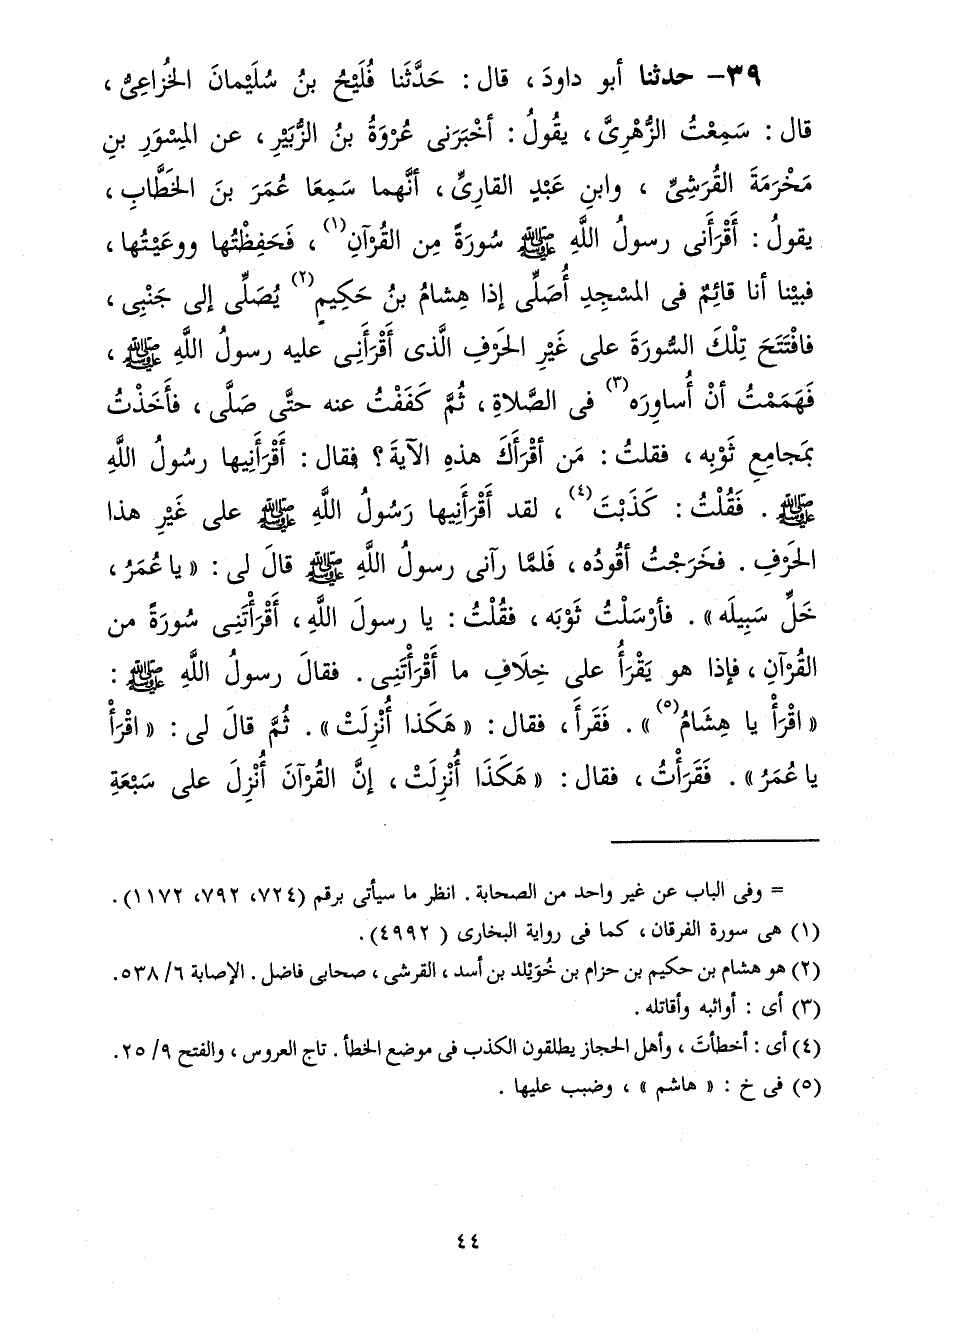 ٣٩- حدثنا أبو داودَ، قال: حَدَّثَنا فُلَيْحُ بنُ سُلَيْمانَ الخُزاعِىُّ،
قال: سَمِعْتُ الزُّهْرِىَّ، يقُولُ: أخْبَرَنى عُرْوَةُ بنُ الزُّبَيْرِ، عن المِسْوَرِ بنِ
مَخْرَمَةَ القُرَشِىِّ، وابنِ عَبْدٍ القارِىِّ، أنَّهما سَمِعَا عُمَرَ بنَ الخَطَّابِ،
يقولُ: أَقْرَأَنى رسولُ اللَّهِ ﷺ سُورَةً مِن القُرْآنِ(١)، فَحَفِظْتُها ووعَيْتُها،
فبيْنا أنا قائِمٌ فى المسْجِدِ أُصَلِّى إذا هِشامُ بنُ حَكِيمٍ(٢) يُصَلِّى إلى جَنْبِى،
فافْتَتَحَ تِلْكَ السُّورَةَ على غَيْرِ الحَرْفِ الَّذى أَقْرَأَنِى عليه رسولُ اللَّهِ ﷺ،
فَهَمَمْتُ أنْ أُساوِرَه(٣) فى الصَّلاةِ، ثُمَّ كَفَفْتُ عنه حتَّى صَلَّى، فأَخَذْتُ
بمَجامِعِ ثَوْبِه، فقلتُ: مَن أقْرَأَكَ هذهِ الآيةَ؟ فقال: أَقْرَأَنِيها رسُولُ اللَّهِ
ﷺ. فَقُلْتُ: كَذَبْتَ(٤)، لقد أَقْرَأَنِيها رَسُولُ اللَّهِ ﷺ على غَيْرِ هذا
الحَرْفِ. فخَرَجْتُ أقُودُه، فَلمَّا رآنى رسولُ اللَّهِ ﷺ قالَ لى: «يا عُمَرُ،
خَلِّ سَبِيلَه». فأرْسَلْتُ ثَوْبَه، فقُلْتُ: يا رسولَ اللَّهِ، أَقْرَأْتَنِى سُورَةً من
القُرْآنِ، فإذا هو يَقْرَأُ على خِلَافِ ما أَقْرَأْتَنِى. فقالَ رسولُ اللَّهِ ﷺ:
«اقْرَأْ يا هِشَامُ(٥)». فَقَرأَ، فقال: «هَكَذا أُنْزِلَتْ». ثُمَّ قالَ لى: «اقْرَأْ
يا عُمَرُ». فَقَرَأْتُ، فقال: «هَكَذَا أُنْزِلَتْ، إنَّ القُرْآنَ أُنْزِلَ على سَبْعَةِ
= وفى الباب عن غير واحد من الصحابة. انظر ما سيأتى برقم (٧٢٤، ٧٩٢، ١١٧٢).
(١) هى سورة الفرقان، كما فى رواية البخارى (٤٩٩٢).
(٢) هو هشام بن حكيم بن حزام بن خُوَيْلد بن أسد، القرشى، صحابى فاضل. الإصابة ٦/ ٥٣٨.
(٣) أى: أواثبه وأقاتله.
(٤) أى: أخطأتَ، وأهل الحجاز يطلقون الكذب فى موضع الخطأ. تاج العروس، والفتح ٩/ ٢٥.
(٥) فى خ: «هاشم»، وضبب عليها.
٤٤